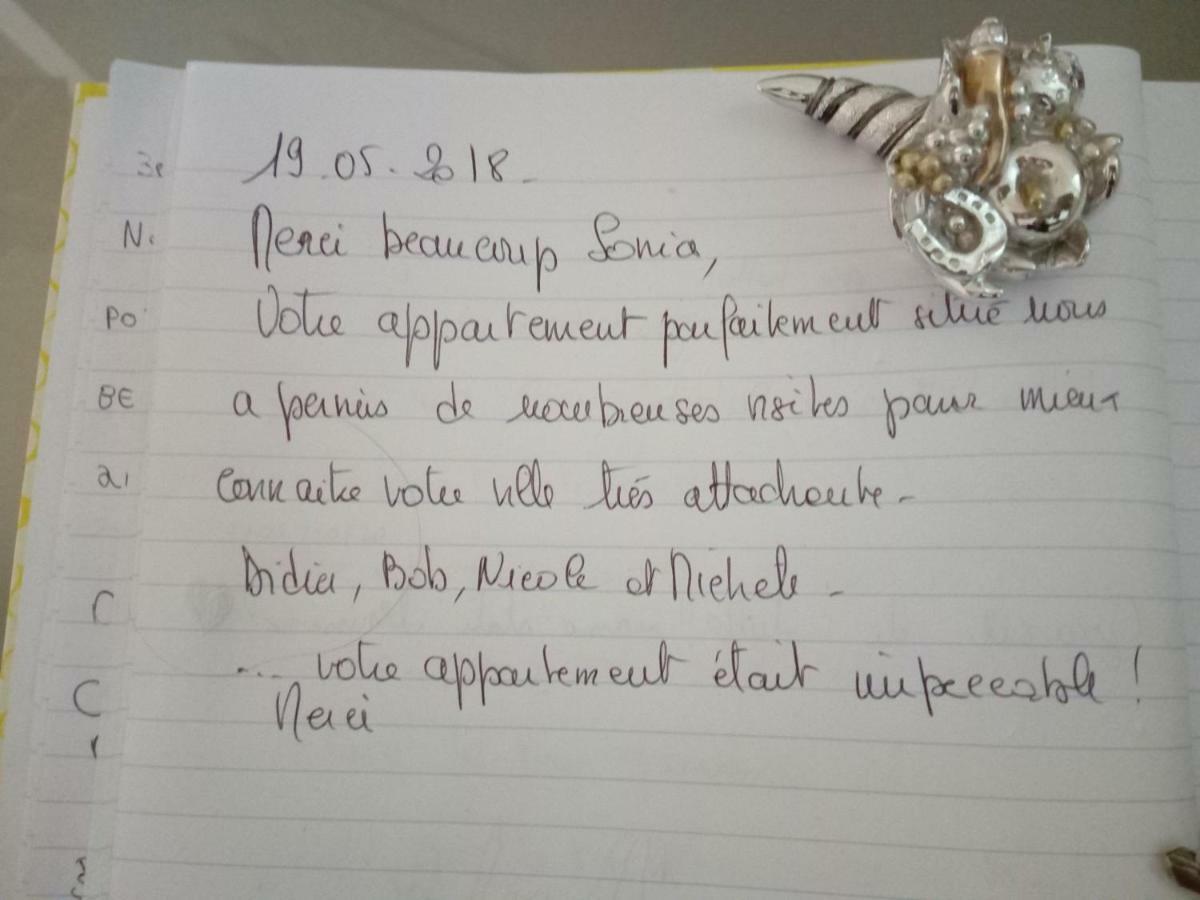 19.05.2018.
Merci beaucoup Sonia,
Votre appartement parfaitement situé nous
a permis de nombreuses visites pour mieux
connaitre votre ville très attachante.
Didier, Bob, Nicole et Michele.
.... votre appartement était impeccable !
Merci